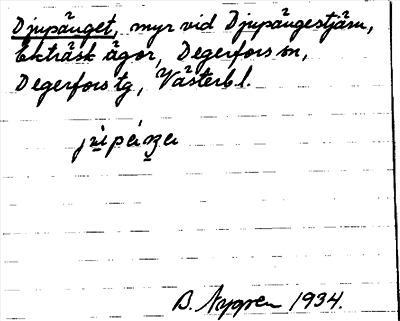 Djupänget, myr vid Djupängestjärn,
Ekträsk ägor, Degerfors sn,
Degerfors tg, Västerb l.
B. Nygren 1934.